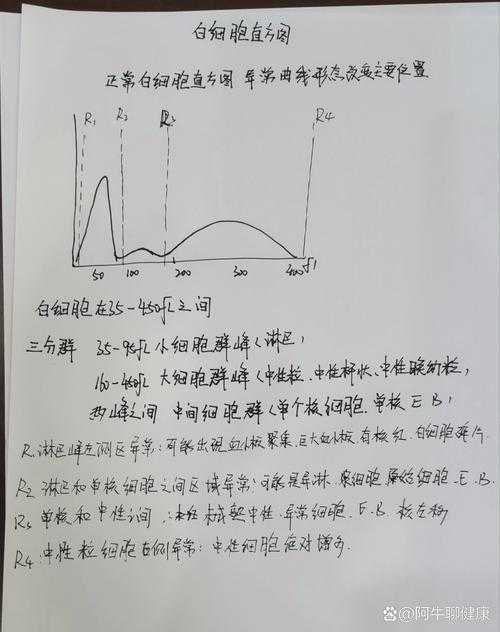 白细胞直方图
正常白细胞直方图 异常曲线形态改变主要位置
R1 R2 R3 R4
50 100 200 300 400 fl
白细胞在35-450fL之间
三分群 35-95fL 小细胞群峰(淋巴)
160-450fL 大细胞群峰(中性粒、中性杆状、中性晚幼粒)
两峰之间 中间细胞群(单个核细胞、单核 E.B)
R1 淋巴峰左侧区异常:可能出现血小板聚集、巨大血小板、有核红、白细胞碎片
R2 淋巴和单核细胞之间区域异常:可能是异淋、浆细胞、原始细胞、E.B
R3 单核和中性之间、未成熟中性、异常细胞、E.B. 核左移
R4 中性粒细胞右侧异常:中性细胞绝对增多
@阿牛聊健康